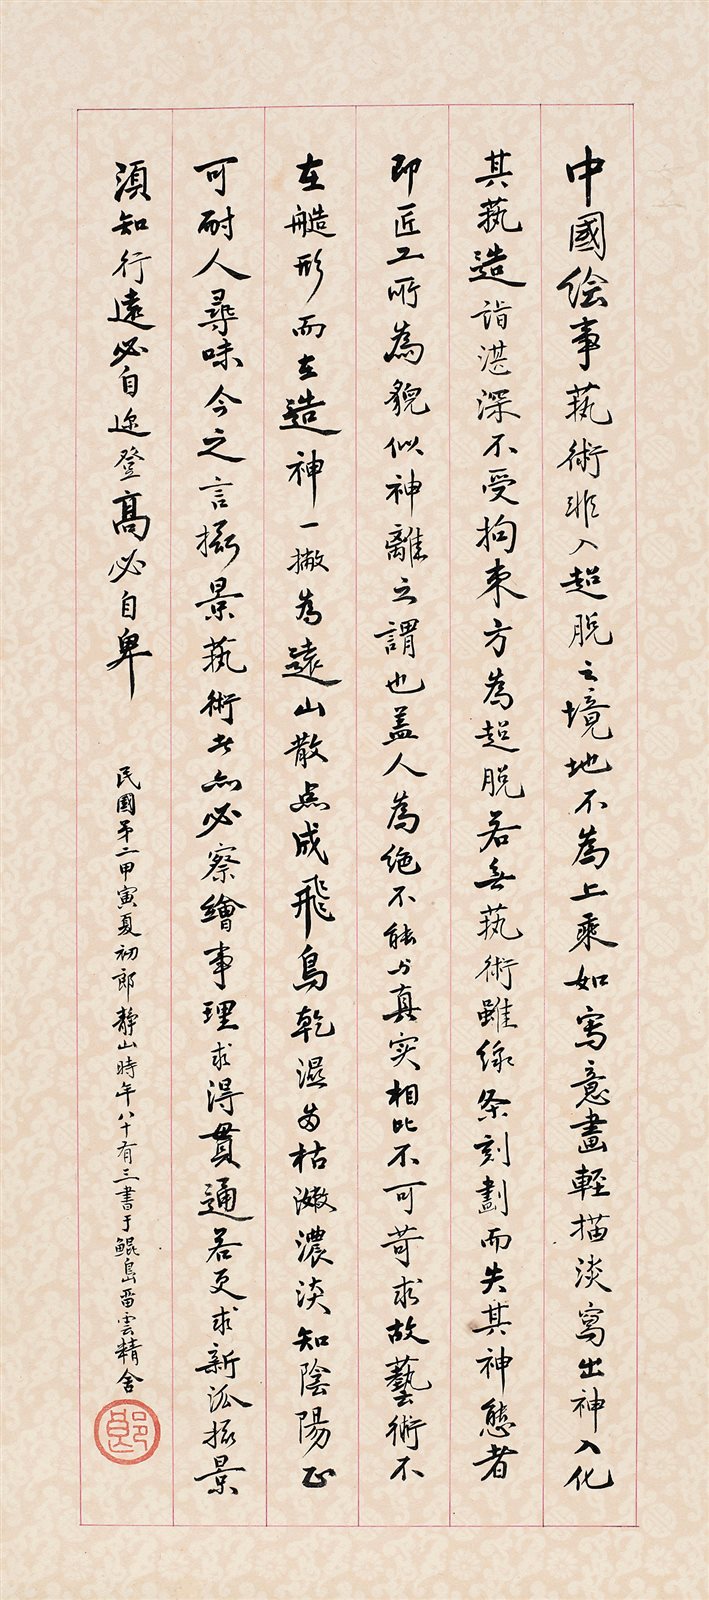 中國绘事蓺術非入超脫之境地不為上乘如寫意畫輕描淡寫出神入化
其蓺造詣湛深不受拘束方為超脫若無蓺術雖線条刻劃而失其神態者
即匠工所為貌似神離之謂也盖人為绝不能与真实相比不可苛求故藝術不
在艁形而在造神一撇為遠山散点成飛鳥乾濕
枯潄濃淡知陰陽正
可耐人尋味今之言攝景蓺術者亦必察繪事理求得貫通若更求新派攝景
須知行遠必自迩登高必自卑
民國第二甲寅夏初郎靜山時年八十有三書于鲲島畱雲精舍
郎